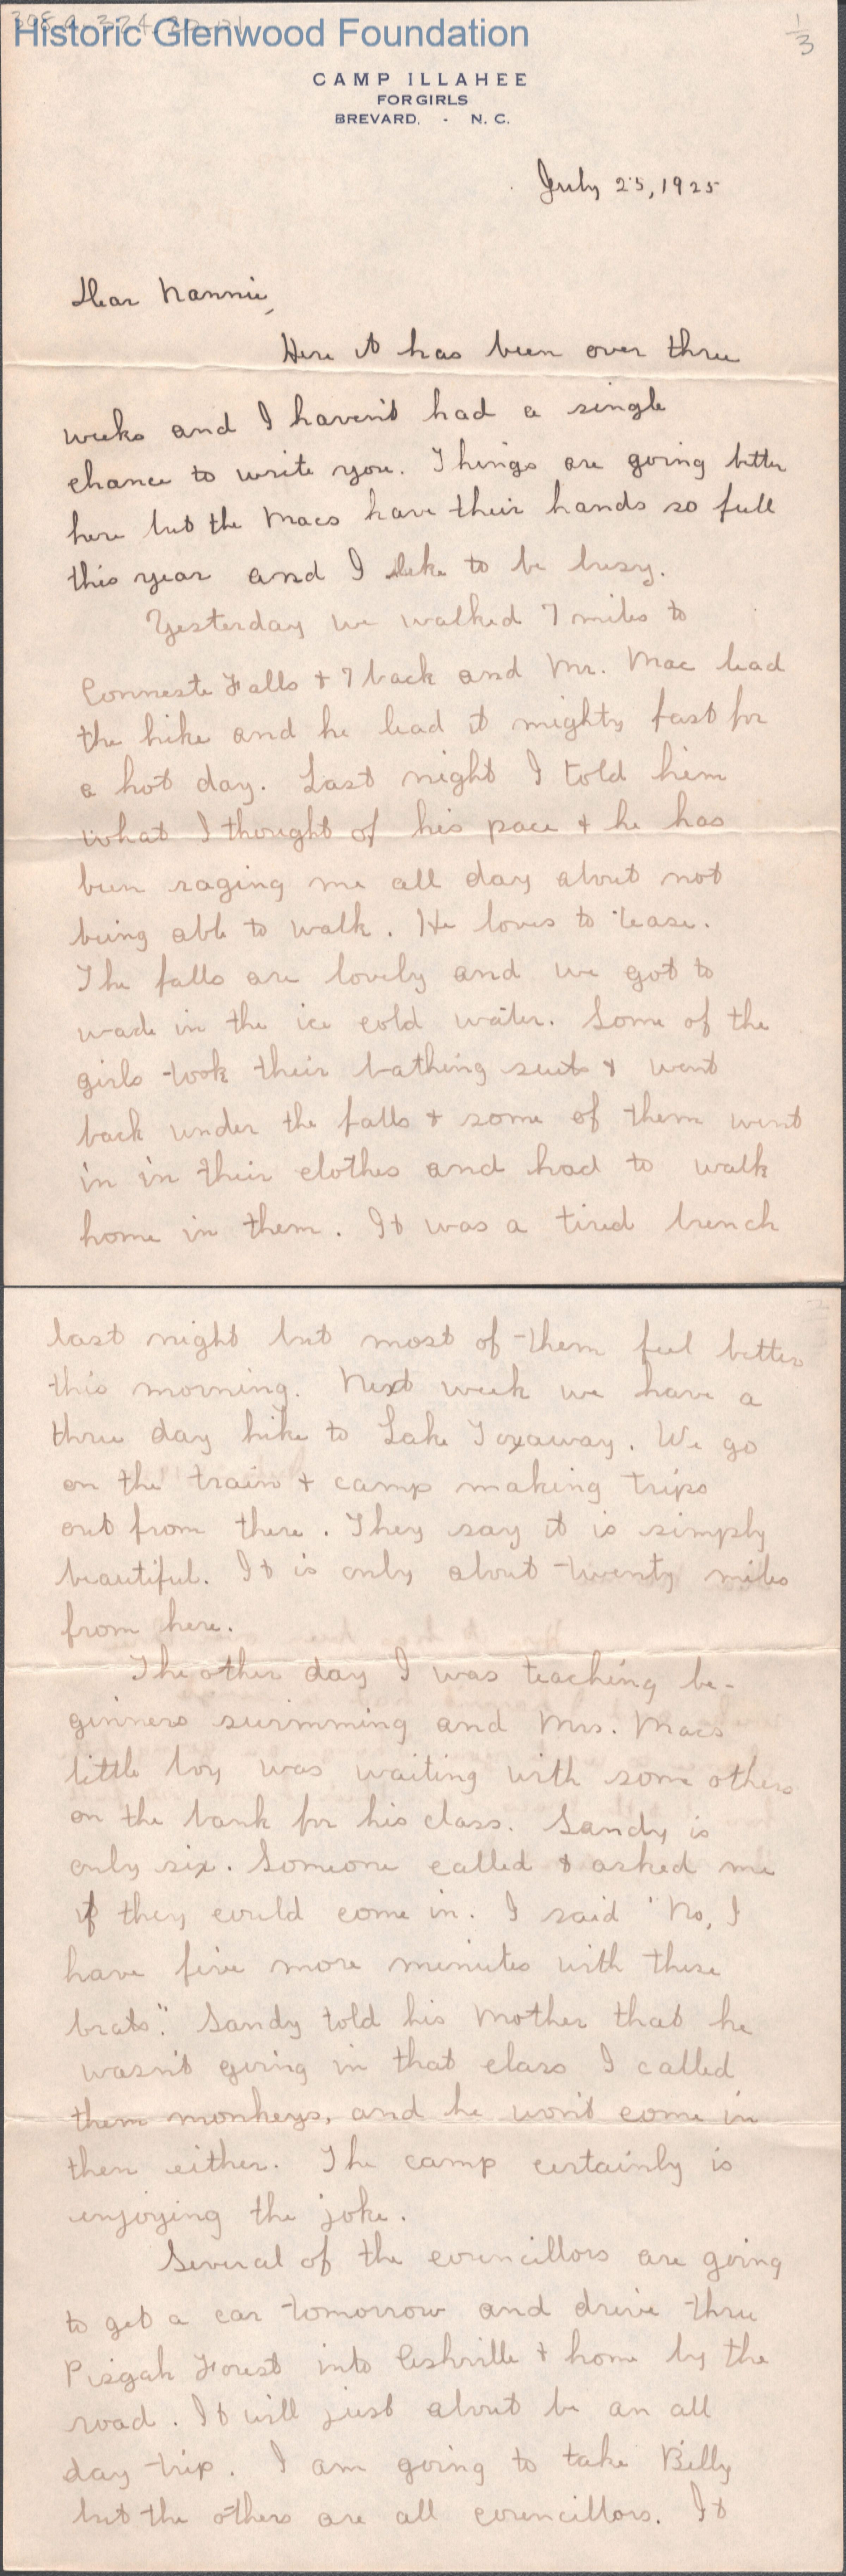 Historic Glenwood Foundation
1/3
CAMP ILLAHEE
FOR GIRLS
BREVARD, - N. C.
July 25, 1925
Dear Nannie,
Here it has been over three
weeks and I haven't had a single
chance to write you. Things are going better
here but the Macs have their hands so full
this year and I like to be busy.
Yesterday we walked 7 miles to
Conneste Falls + 7 back and Mr. Mac lead
the hike and he lead it mighty fast for
a hot day. Last night I told him
what I thought of his pace + he has
been raging me all day about not
being able to walk. He loves to tease.
The falls are lovely and we got to
wade in the ice cold water. Some of the
girls took their bathing suits & went
back under the falls + some of them went
in in their clothes and had to walk
home in them. It was a tired bunch
last night but most of them feel better
this morning. Next week we have a
three day hike to Lake Toxaway. We go
on the train + camp making trips
out from there. They say it is simply
beautiful. It is only about twenty miles
from here.
The other day I was teaching be-
ginners swimming and Mrs. Macs
little boy was waiting with some others
on the bank for his class. Sandy is
only six. Someone called & asked me
if they could come in. I said "No, I
have five more minutes with these
brats." Sandy told his Mother that he
wasn't going in that class I called
them monkeys, and he won't come in
then either. The camp certainly is
enjoying the joke.
Several of the councillors are going
to get a car tomorrow and drive thru
Pisgah Forest into Ashville + home by the
road. It will just about be an all
day trip. I am going to take Billy
but the others are all councillors. It